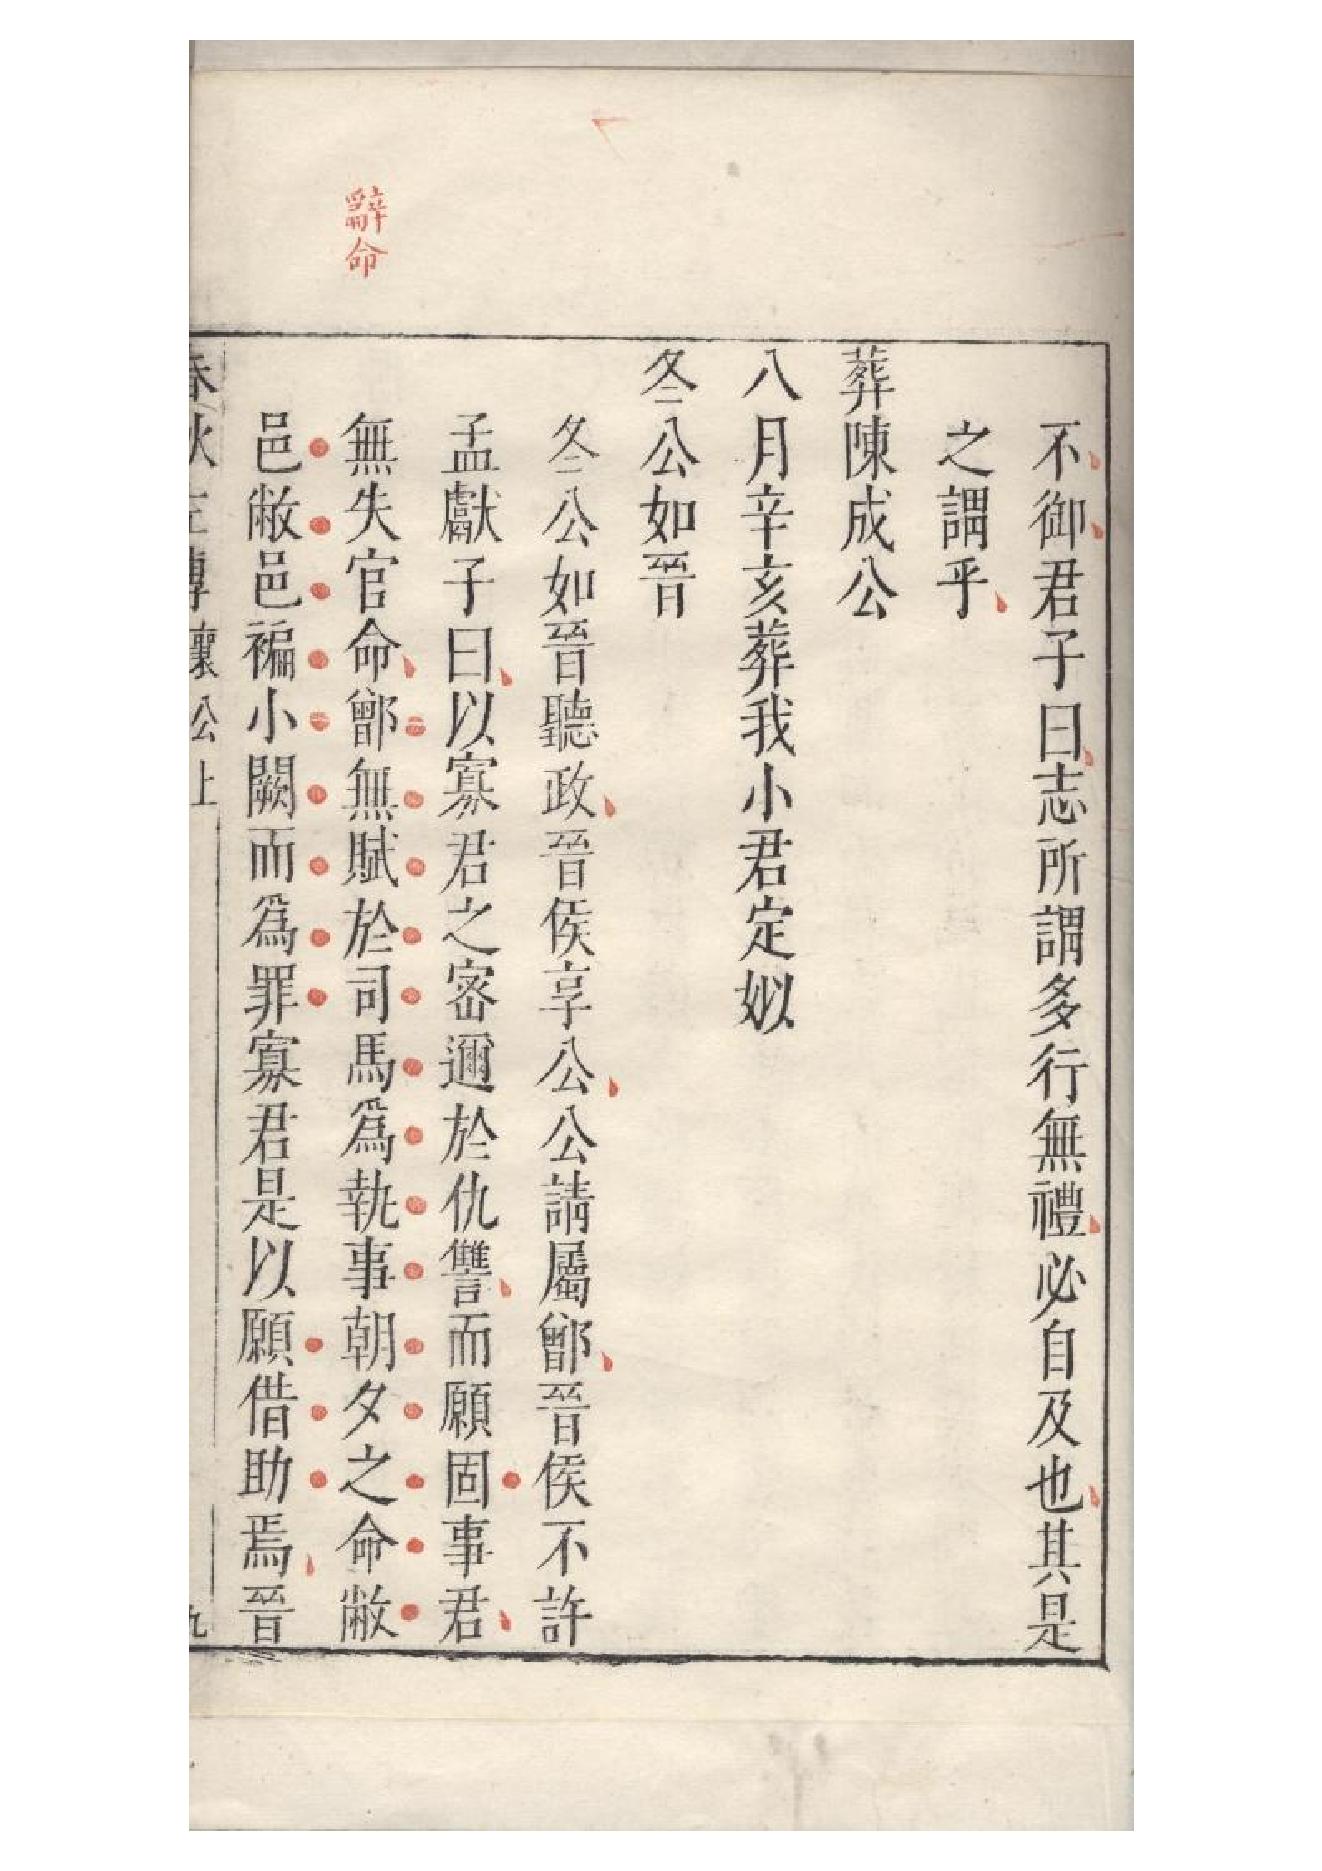 辭命
不御君子曰志所謂多行無禮必自及也其是
之謂乎
葬陳成公
八月辛亥葬我小君定姒
冬公如晉
冬公如晉聽政晉侯享公公請屬鄫晉侯不許
孟獻子曰以寡君之密邇於仇讐而願固事君
無失官命鄫無賦於司馬爲執事朝夕之命敝
邑敝邑褊小闕而爲罪寡君是以願借助焉晉
春秋左傳 襄公上 九